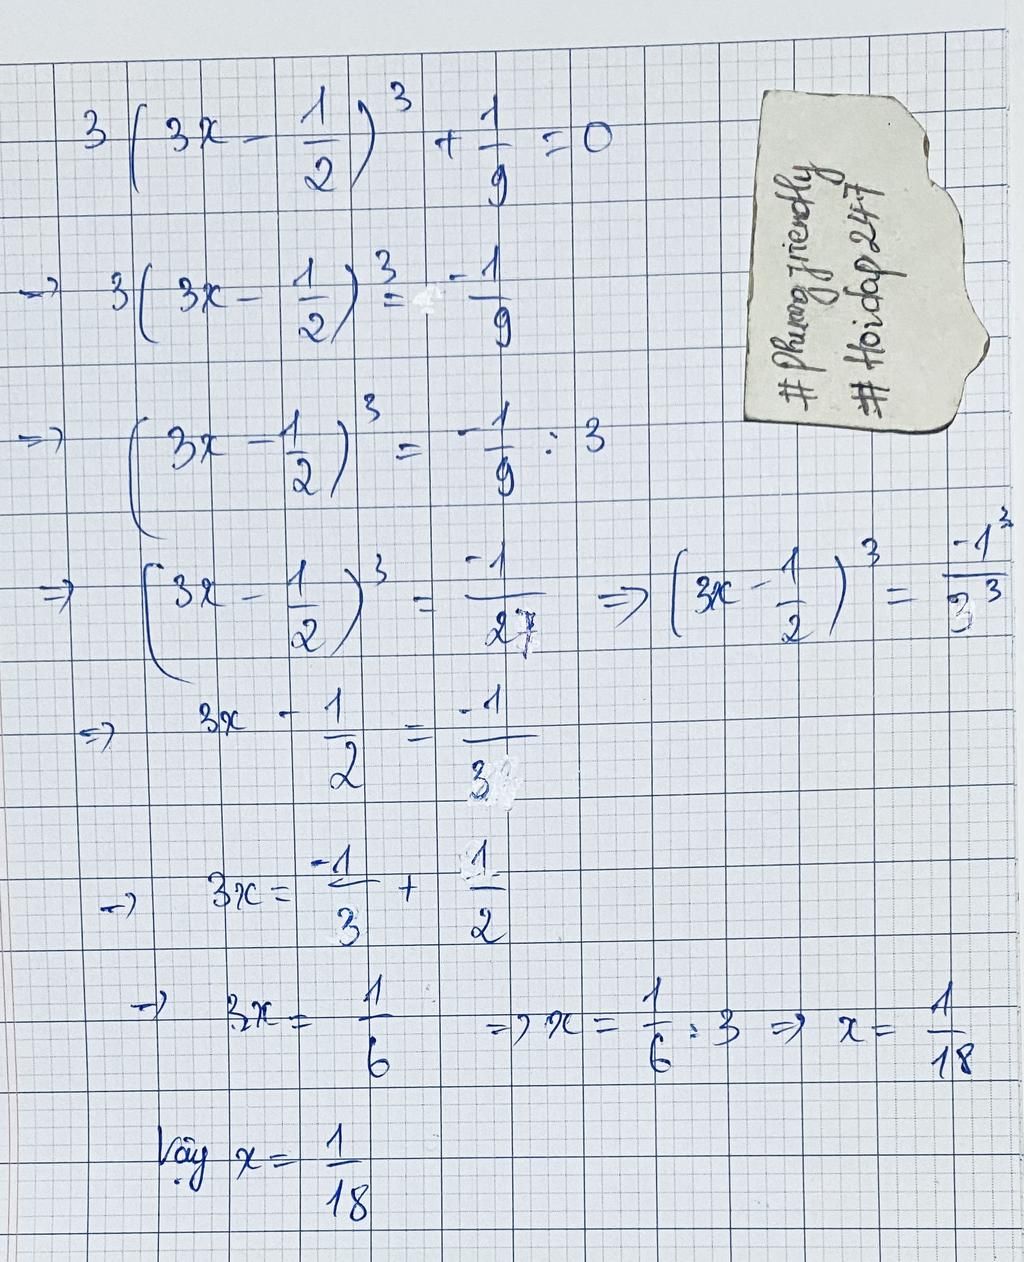 3(3x - 1/2)³ + 1/9 = 0
=> 3(3x - 1/2)³ = -1/9
=> (3x - 1/2)³ = -1/9 : 3
=> (3x - 1/2)³ = -1/27 => (3x - 1/2)³ = -1³/3³
=> 3x - 1/2 = -1/3
=> 3x = -1/3 + 1/2
=> 3x = 1/6 => x = 1/6 : 3 => x = 1/18
Vậy x = 1/18
#Phuongfriendly
#Hoidap247